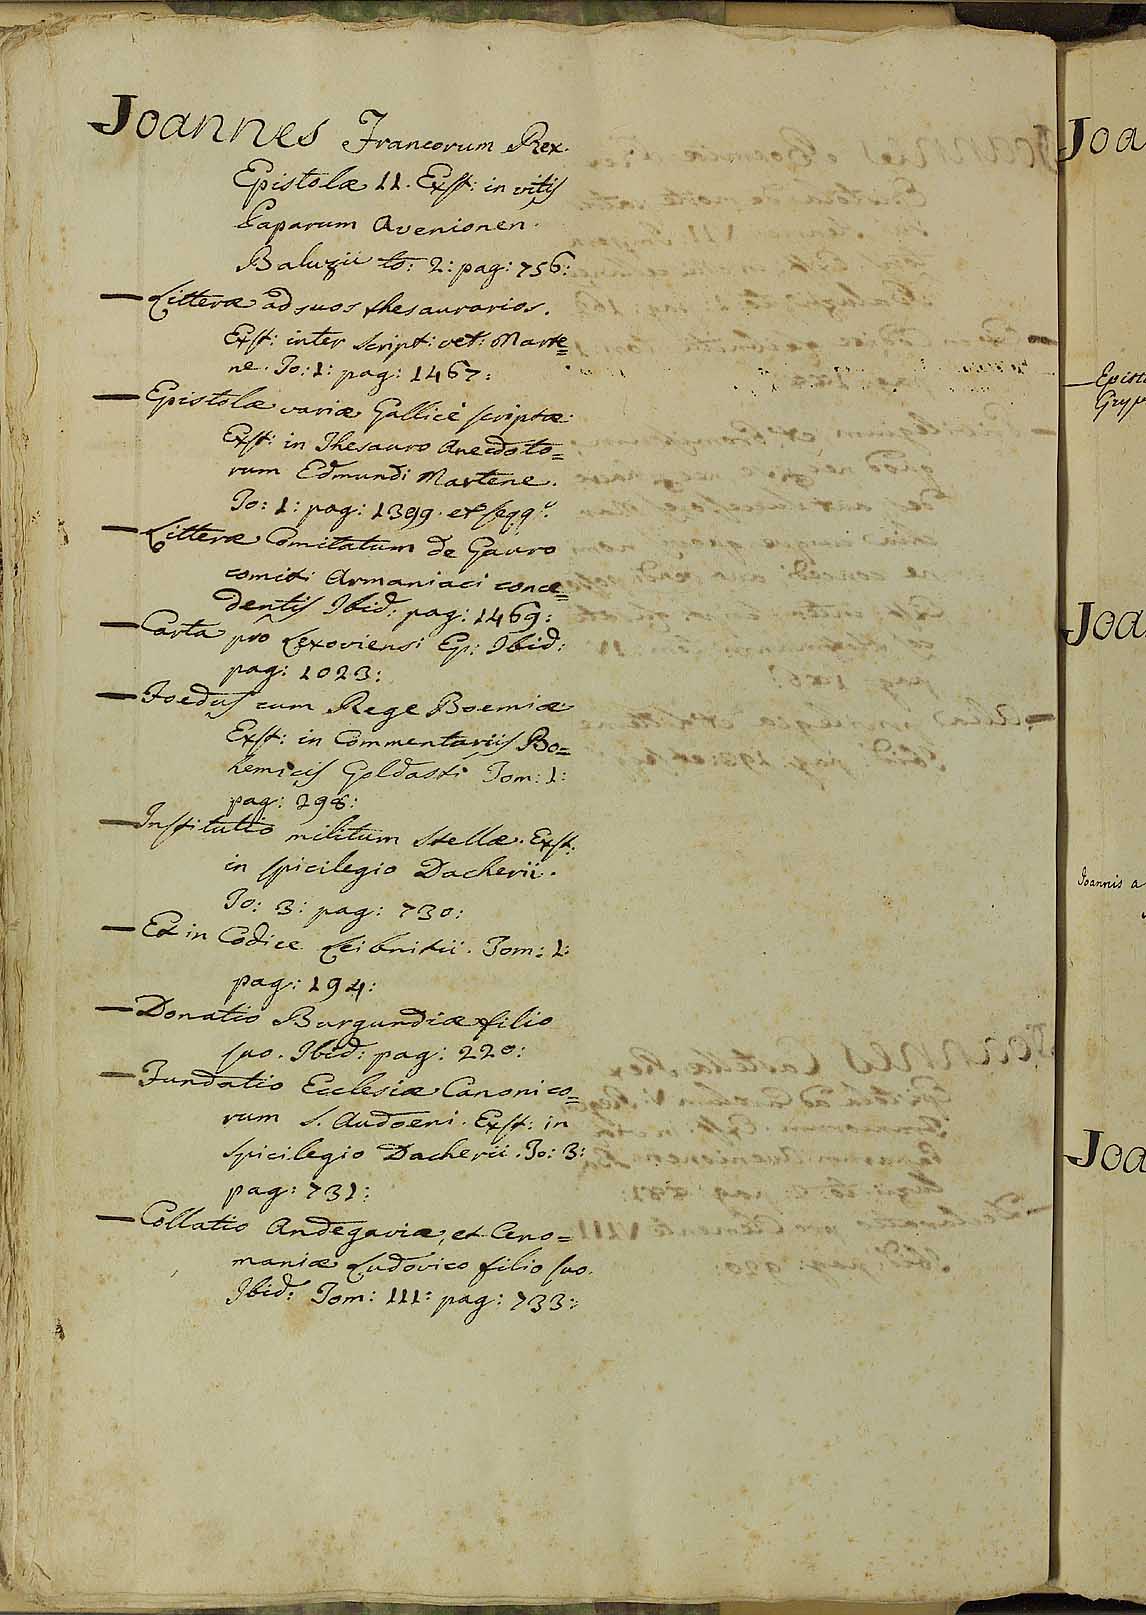 Joannes Francorum Rex.
Epistolæ 11. Exst: in vitis
Paparum Avenionen.
Baluzii to: 2: pag: 756:
— Litteræ ad suos thesaurarios.
Exst: inter script: vet: Marte=
ne. To: 1: pag: 1467:
— Epistolæ variæ Gallicè scriptæ
Exst: in Thesauro Anecdoto=
rum Edmundi Martene.
To: 1: pag: 1399. et seqq:
— Litteræ Comitatum de Gauro
comiti Armaniaci conce=
dentis Ibid: pag: 1469:
— Carta pro Lexoviensi Ep: Ibid:
pag: 1023:
— Foedus cum Rege Boemiæ
Exst: in Commentariis Bo=
hemicis Goldasti Tom: 1:
pag: 298:
— Institutio militum stellæ. Exst:
in spicilegio Dacherii.
To: 3: pag: 730:
— Et in Codice Leibnitii. Tom: 1:
pag: 194:
— Donatio Burgundiæ filio
suo. Ibid: pag: 220:
— Fundatio Ecclesiæ Canonico=
rum S. Audoeni. Exst: in
spicilegio Dacherii. To: 3:
pag: 731:
— Collatio Andegaviæ, et Ceno=
maniæ Ludovico filio suo.
Ibid: Tom: 111: pag: 733:
Joa
— Episto
Gryp
Joa
Joannis a
Joa